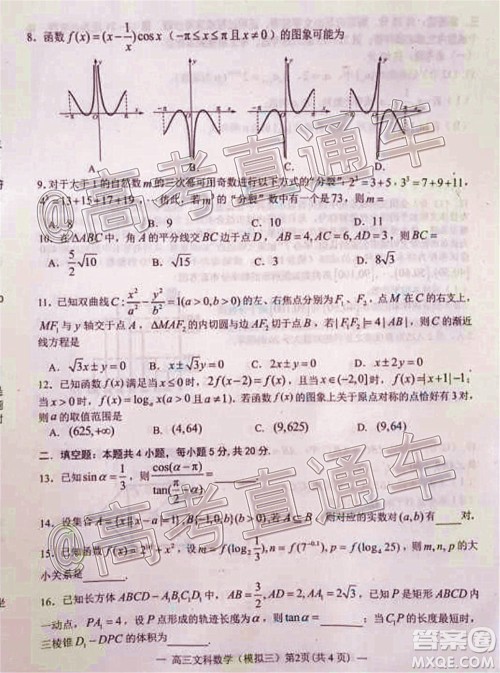 8. 函数 f(x)=(x-\frac{1}{x})cosx (-π≤x≤π且x≠0) 的图象可能为
A. B. C. D.
9. 对于大于1的自然数m的三次幂可用奇数进行以下方式的“分裂”: 2³=3+5, 3³=7+9+11,
4³=13+15+17+19, …仿此, 若m³的“分裂”数中有一个是73, 则m=
A. 8 B. 9 C. 10 D.
10. 在△ABC中, 角A的平分线交BC边于点D, AB=4, AC=AD=2, 则BC=
A. \frac{5}{2}√10 B. √15 C. 3 D. 8√3
11. 已知双曲线C: \frac{x²}{a²}-\frac{y²}{b²}=1(a>0,b>0)的左、右焦点分别为F₁、F₂, 点M在C的右支上,
MF₁与y轴交于点A, △MAF₂的内切圆与边AF₂切于点B, 若|F₁F₂|=4|AB|, 则C的渐近
线方程是
A. √3x±y=0 B. x±√3y=0 C. 2x±y=0 D. x±2y=0
12. 已知函数f(x)满足当x≤0时, 2f(x-2)=f(x), 且当x∈(-2,0]时, f(x)=|x+1|-1;
当x>0时, f(x)=logₐx(a>0且a≠1). 若函数f(x)的图象上关于原点对称的点恰好有3对,
则a的取值范围是
A. (625,+∞) B. (4,64) C. (9,625) D. (9,64)
二、填空题: 本题共4小题, 每小题5分, 共20分.
13. 已知sinα=\frac{1}{3}, 则\frac{cos(α-π)}{tan(\frac{π}{2}-α)}
14. 设集合A={x||x-a|=1}, B={-1,0,b}(b>0), 若A⊂B, 则对应的实数对(a,b)有____对.
15. 已知函数f(x)=2^{|x|}+x², m=f(log₂\frac{1}{3}), n=f(7^{-0.1}), p=f(log₄25), 则m,n,p的大
小关系是____.
16. 已知长方体ABCD-A₁B₁C₁D₁中, AB=\frac{3}{2}, AD=2, AA₁=2√3, 已知P是矩形
ABCD内一动点, PA₁=4, 设P点形成的轨迹长度为α, 则tanα=____; 当C₁P的长度最短时,
三棱锥D₁-DPC的体积为____.
— 高三文科数学 (模拟三) 第2页(共4页) —
高考直通车
高考直通车
答案圈
www.daanquan.com